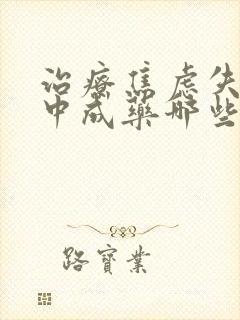 治療焦慮失
中成藥哪些
路寶業